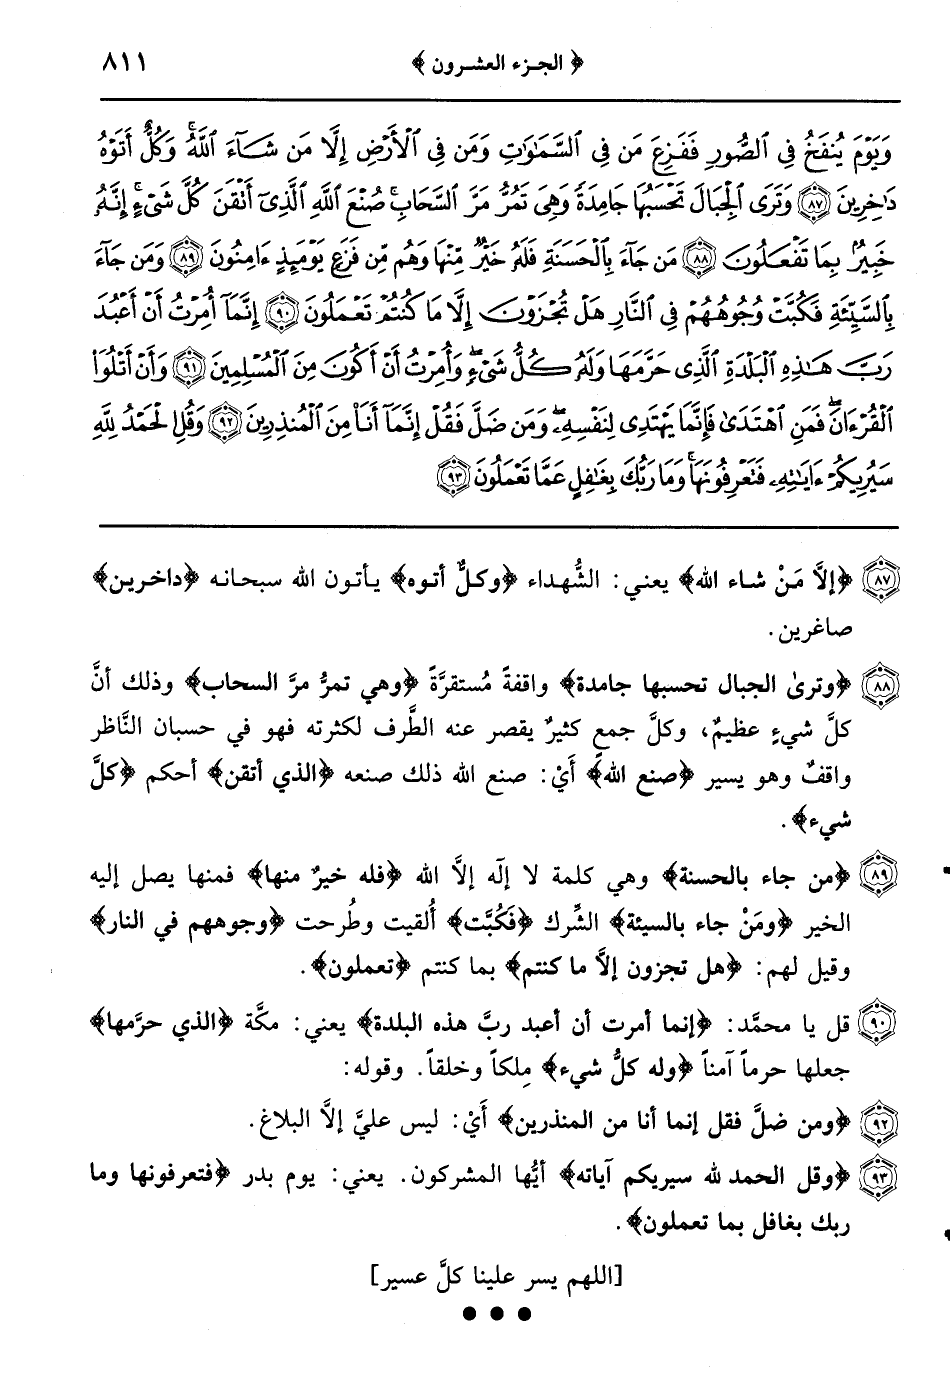 ﴿ الجزء العشرون ﴾ ٨١١
وَيَوْمَ يُنفَخُ فِي ٱلصُّورِ فَفَزِعَ مَن فِي ٱلسَّمَٰوَٰتِ وَمَن فِي ٱلْأَرْضِ إِلَّا مَن شَآءَ ٱللَّهُ ۚ وَكُلٌّ أَتَوْهُ
دَٰخِرِينَ ٨٧ وَتَرَى ٱلْجِبَالَ تَحْسَبُهَا جَامِدَةً وَهِيَ تَمُرُّ مَرَّ ٱلسَّحَابِ ۚ صُنْعَ ٱللَّهِ ٱلَّذِىٓ أَتْقَنَ كُلَّ شَىْءٍ ۚ إِنَّهُۥ
خَبِيرٌۢ بِمَا تَفْعَلُونَ ٨٨ مَن جَآءَ بِٱلْحَسَنَةِ فَلَهُۥ خَيْرٌ مِّنْهَا وَهُم مِّن فَزَعٍ يَوْمَئِذٍ ءَامِنُونَ ٨٩ وَمَن جَآءَ
بِٱلسَّيِّئَةِ فَكُبَّتْ وُجُوهُهُمْ فِي ٱلنَّارِ هَلْ تُجْزَوْنَ إِلَّا مَا كُنتُمْ تَعْمَلُونَ ٩٠ إِنَّمَآ أُمِرْتُ أَنْ أَعْبُدَ
رَبَّ هَٰذِهِ ٱلْبَلْدَةِ ٱلَّذِى حَرَّمَهَا وَلَهُۥ كُلُّ شَىْءٍ ۖ وَأُمِرْتُ أَنْ أَكُونَ مِنَ ٱلْمُسْلِمِينَ ٩١ وَأَنْ أَتْلُوَا۟
ٱلْقُرْءَانَ ۖ فَمَنِ ٱهْتَدَىٰ فَإِنَّمَا يَهْتَدِى لِنَفْسِهِۦ ۖ وَمَن ضَلَّ فَقُلْ إِنَّمَآ أَنَا۠ مِنَ ٱلْمُنذِرِينَ ٩٢ وَقُلِ ٱلْحَمْدُ لِلَّهِ
سَيُرِيكُمْ ءَايَٰتِهِۦ فَتَعْرِفُونَهَا ۚ وَمَا رَبُّكَ بِغَٰفِلٍ عَمَّا تَعْمَلُونَ ٩٣
٨٧ ﴿إلَّا مَنْ شاء الله﴾ يعني: الشُّهداء ﴿وكلٌّ أتوه﴾ يأتون الله سبحانه ﴿داخرين﴾
صاغرين.
٨٨ ﴿وترىٰ الجبال تحسبها جامدة﴾ واقفةً مُستقرَّةً ﴿وهي تمرُّ مرَّ السحاب﴾ وذلك أنَّ
كلَّ شيءٍ عظيمٌ، وكلَّ جمعٍ كثيرٌ يقصر عنه الطَّرف لكثرته فهو في حسبان النَّاظر
واقفٌ وهو يسير ﴿صنع الله﴾ أَيْ: صنع الله ذلك صنعه ﴿الذي أتقن﴾ أحكم ﴿كلَّ
شيء﴾.
٨٩ ﴿من جاء بالحسنة﴾ وهي كلمة لا إلٓه إلاَّ الله ﴿فله خيرٌ منها﴾ فمنها يصل إليه
الخير ﴿ومَنْ جاء بالسيئة﴾ الشِّرك ﴿فَكُبَّت﴾ أُلقيت وطُرحت ﴿وجوههم في النار﴾
وقيل لهم: ﴿هل تجزون إلاَّ ما كنتم﴾ بما كنتم ﴿تعملون﴾.
٩٠ قل يا محمَّد: ﴿إنما أمرت أن أعبد ربَّ هذه البلدة﴾ يعني: مكَّة ﴿الذي حرَّمها﴾
جعلها حرماً آمناً ﴿وله كلُّ شيء﴾ مِلكاً وخلقاً. وقوله:
٩٢ ﴿ومن ضلَّ فقل إنما أنا من المنذرين﴾ أَيْ: ليس عليَّ إلاَّ البلاغ.
٩٣ ﴿وقل الحمد لله سيريكم آياته﴾ أيُّها المشركون. يعني: يوم بدر ﴿فتعرفونها وما
ربك بغافل بما تعملون﴾.
[اللهم يسر علينا كلَّ عسير]